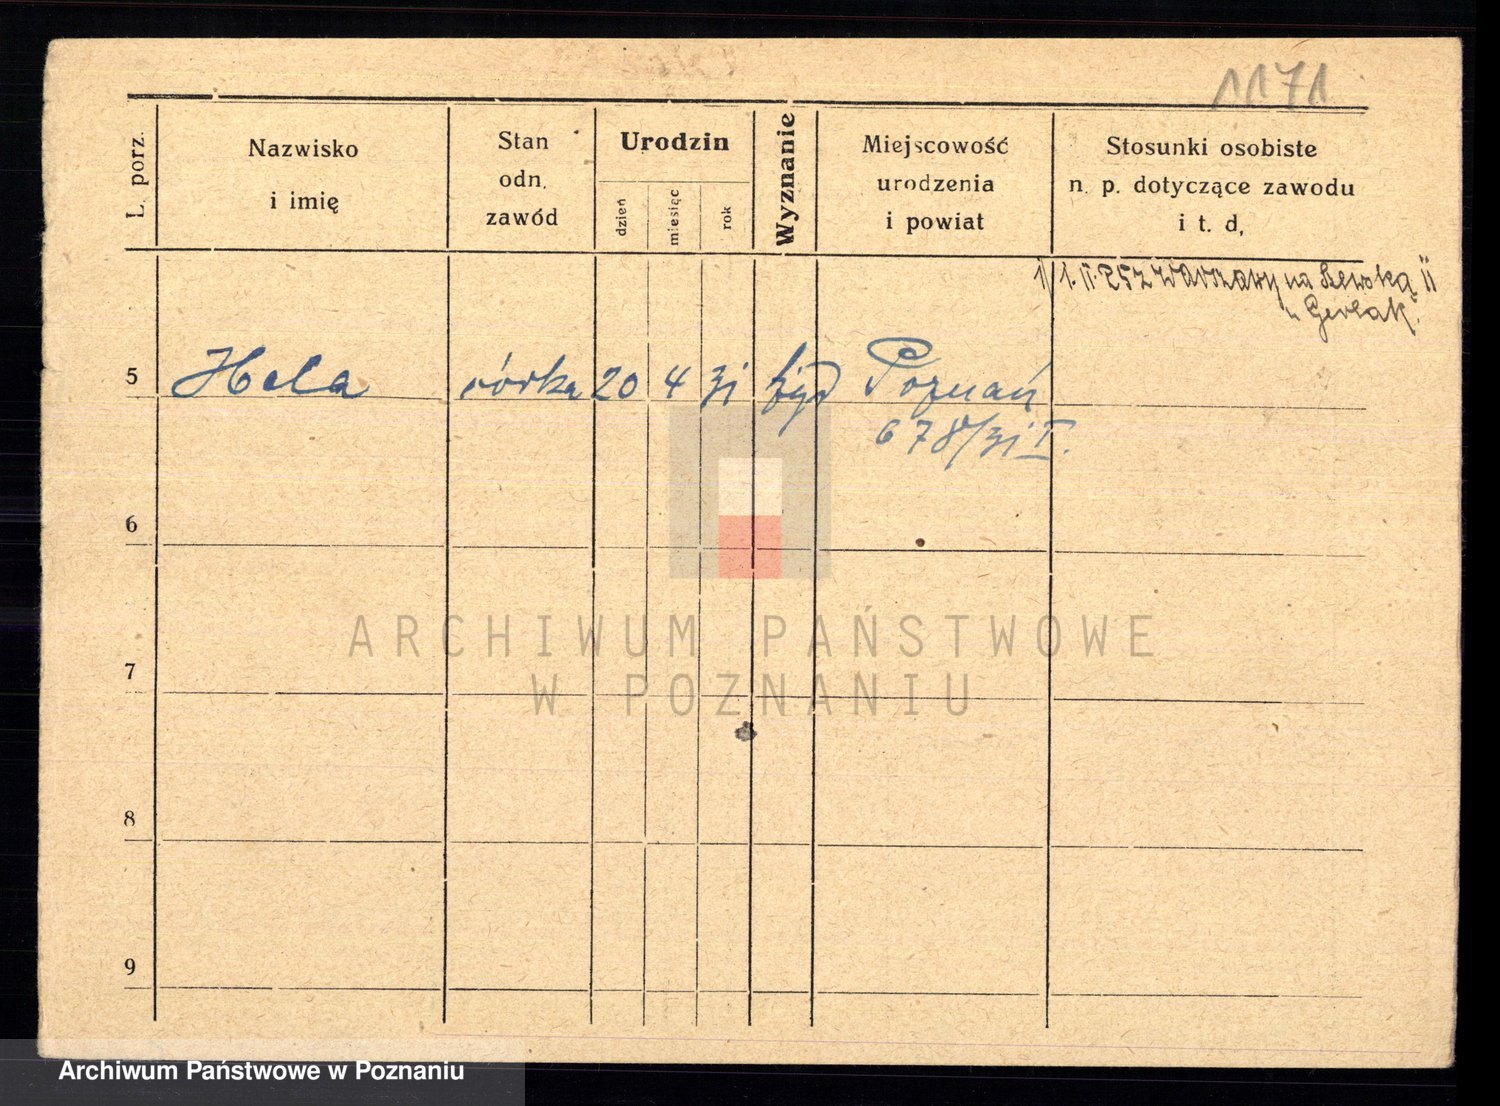 1171
L. porz.
Nazwisko
i imię
Stan
odn.
zawód
Urodzin
dzień
miesięc
rok
Wyznanie
Miejscowość
urodzenia
i powiat
Stosunki osobiste
n. p. dotyczące zawodu
i t. d,
z Warszawy na
5 Hela córka 20 4 31 żyd Poznań
678/31 I.
6
7
8
9
ARCHIWUM PAŃSTWOWE
W POZNANIU
Archiwum Państwowe w Poznaniu